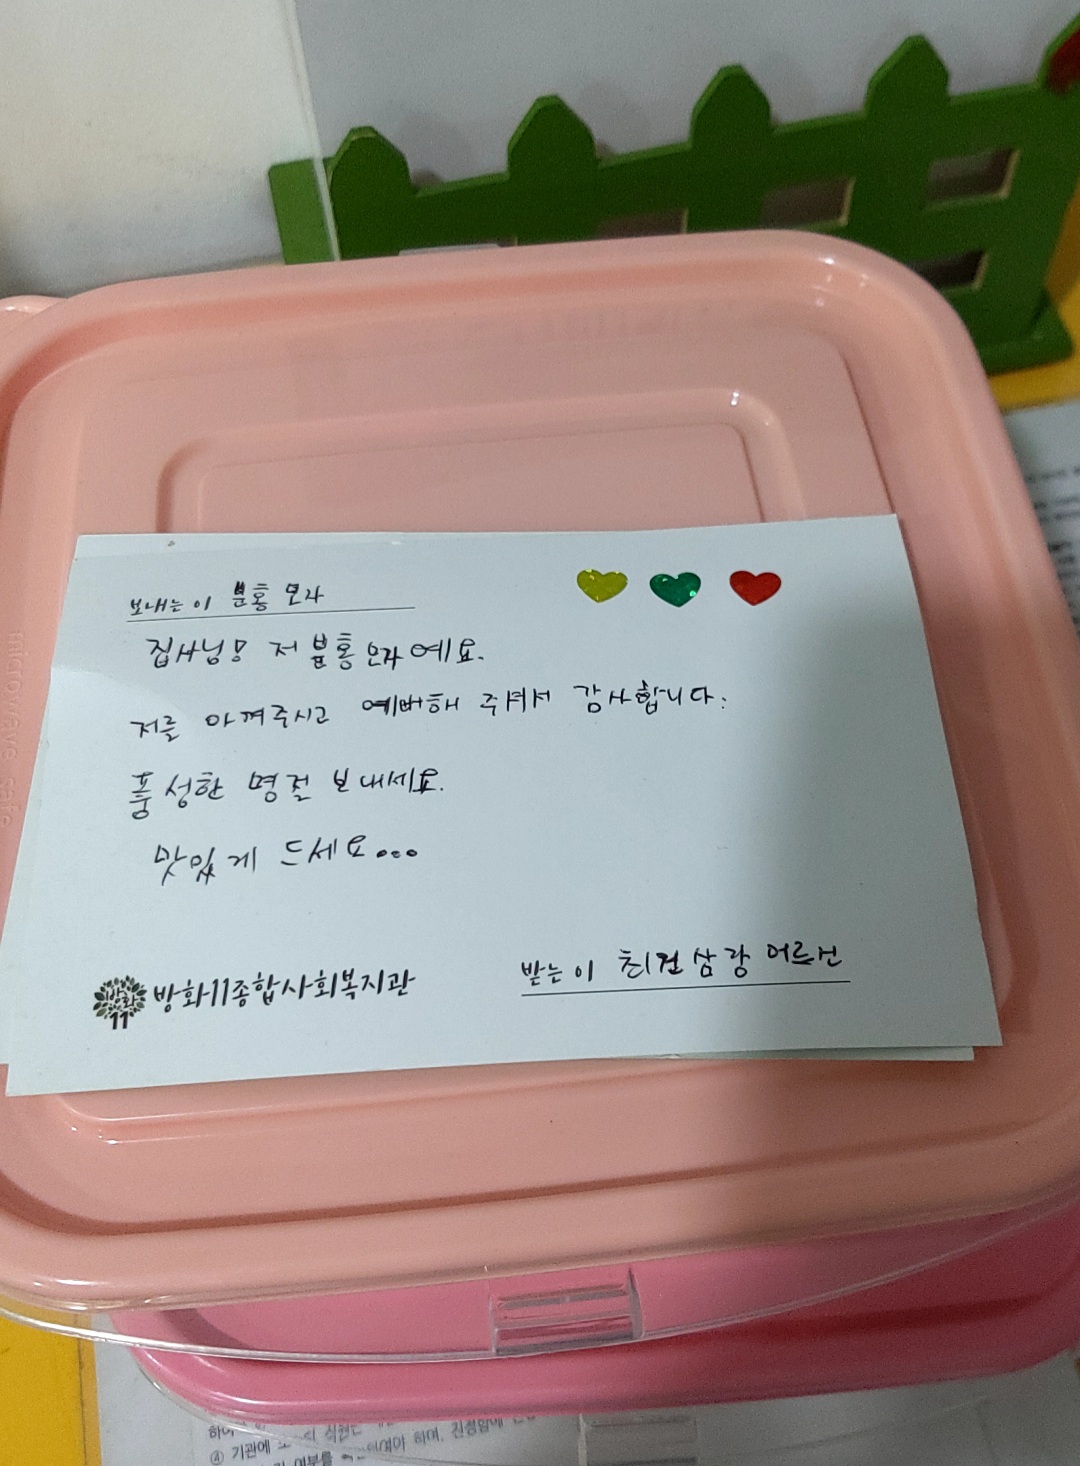 보내는 이 분홍 모자
집사님! 저 분홍 모자예요.
저를 아껴주시고 예뻐해 주셔서 감사합니다.
풍성한 명절 보내세요.
맛있게 드세요...
방화11종합사회복지관
받는 이 최 삼랑 어르신
microwave safe
④ 기관에